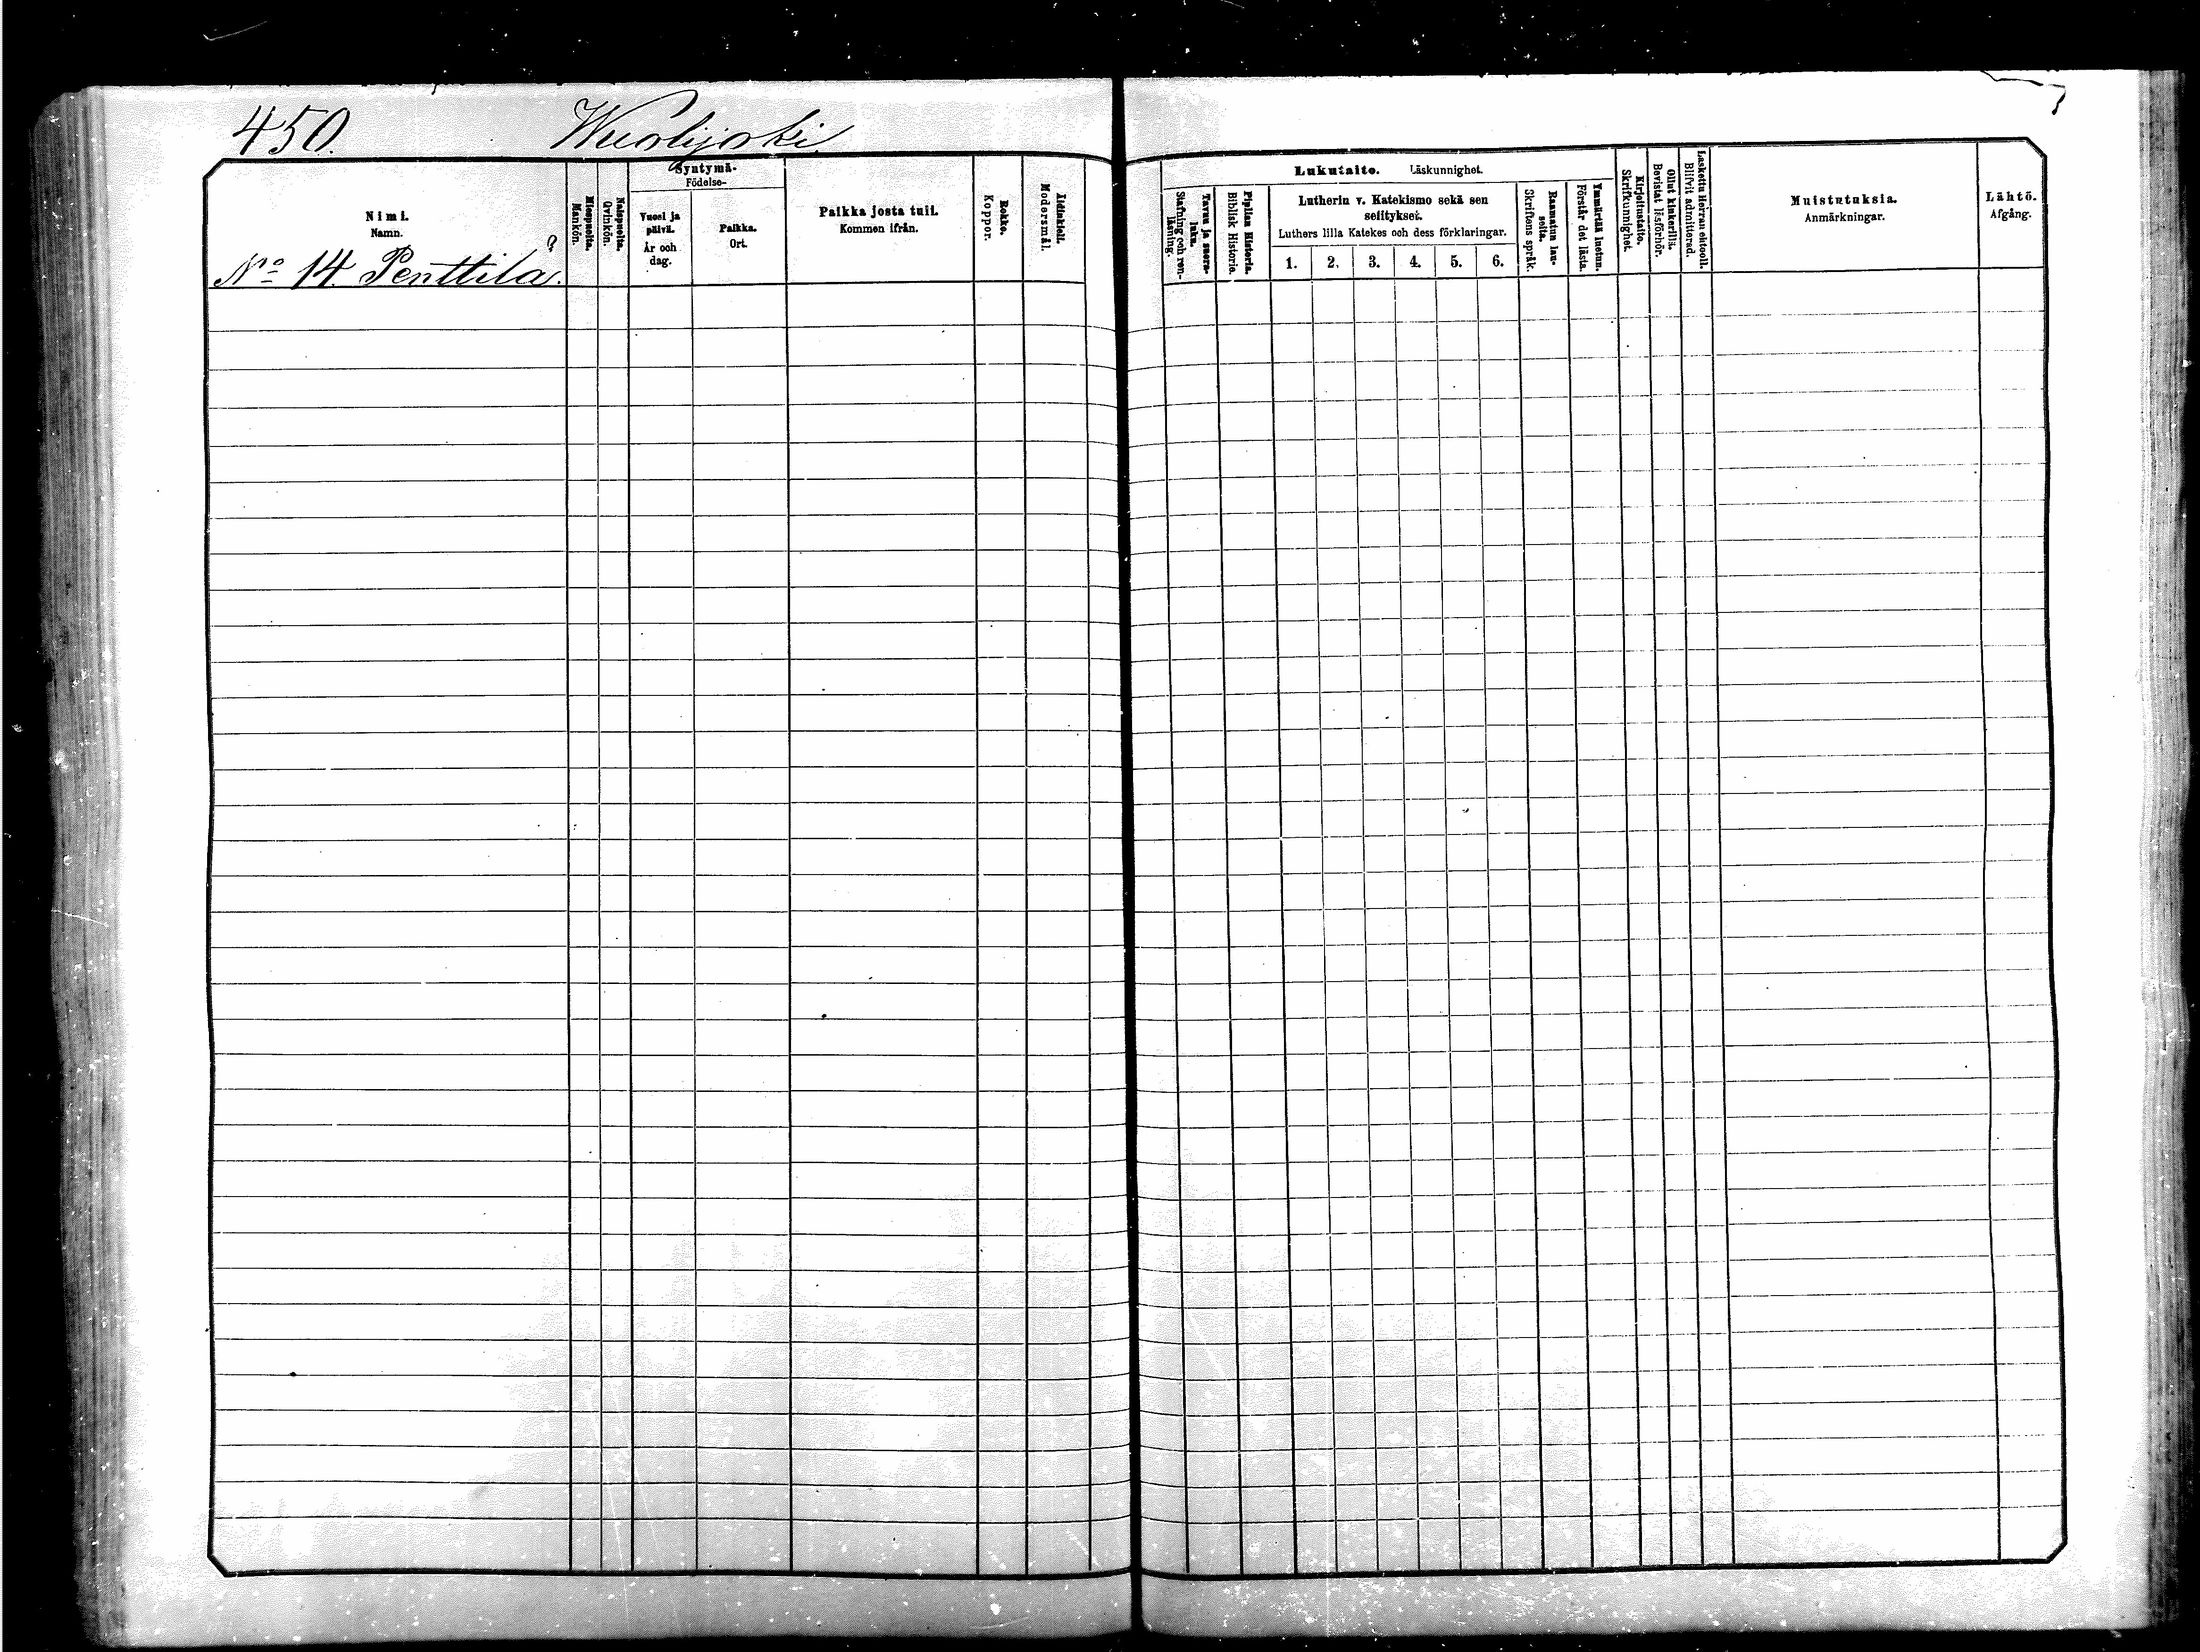 450. Wuolijoki.
Syntymä-
Födelse-
Nimi.
Namn.
Miespuolta.
Mankön.
Naispuolta.
Qvinkön.
Vuosi ja
päivä.
År och
dag.
Paikka.
Ort.
Paikka josta tuli.
Kommen ifrån.
Rokko.
Koppor.
Äidinkieli.
Modersmål.
No 14. Penttilä.
Lukutaito. Läskunnighet.
Tavuu ja suora-
luku.
Stafning och ren-
läsning.
Piplian Historia.
Biblisk Historie.
Lutherin v. Katekismo sekä sen
selitykset.
Luthers lilla Katekes och dess förklaringar.
1. 2. 3. 4. 5. 6.
Raamatun lau-
seita.
Skriftens språk.
Ymmärtää luetun.
Förstår det lästa.
Kirjoitustaito.
Skrifkunnighet.
Ollut kinkerillä.
Bevistat läsförhör.
Laskettu Herran ehtooll.
Blifvit admitterad.
Muistutuksia.
Anmärkningar.
Lähtö.
Afgång.